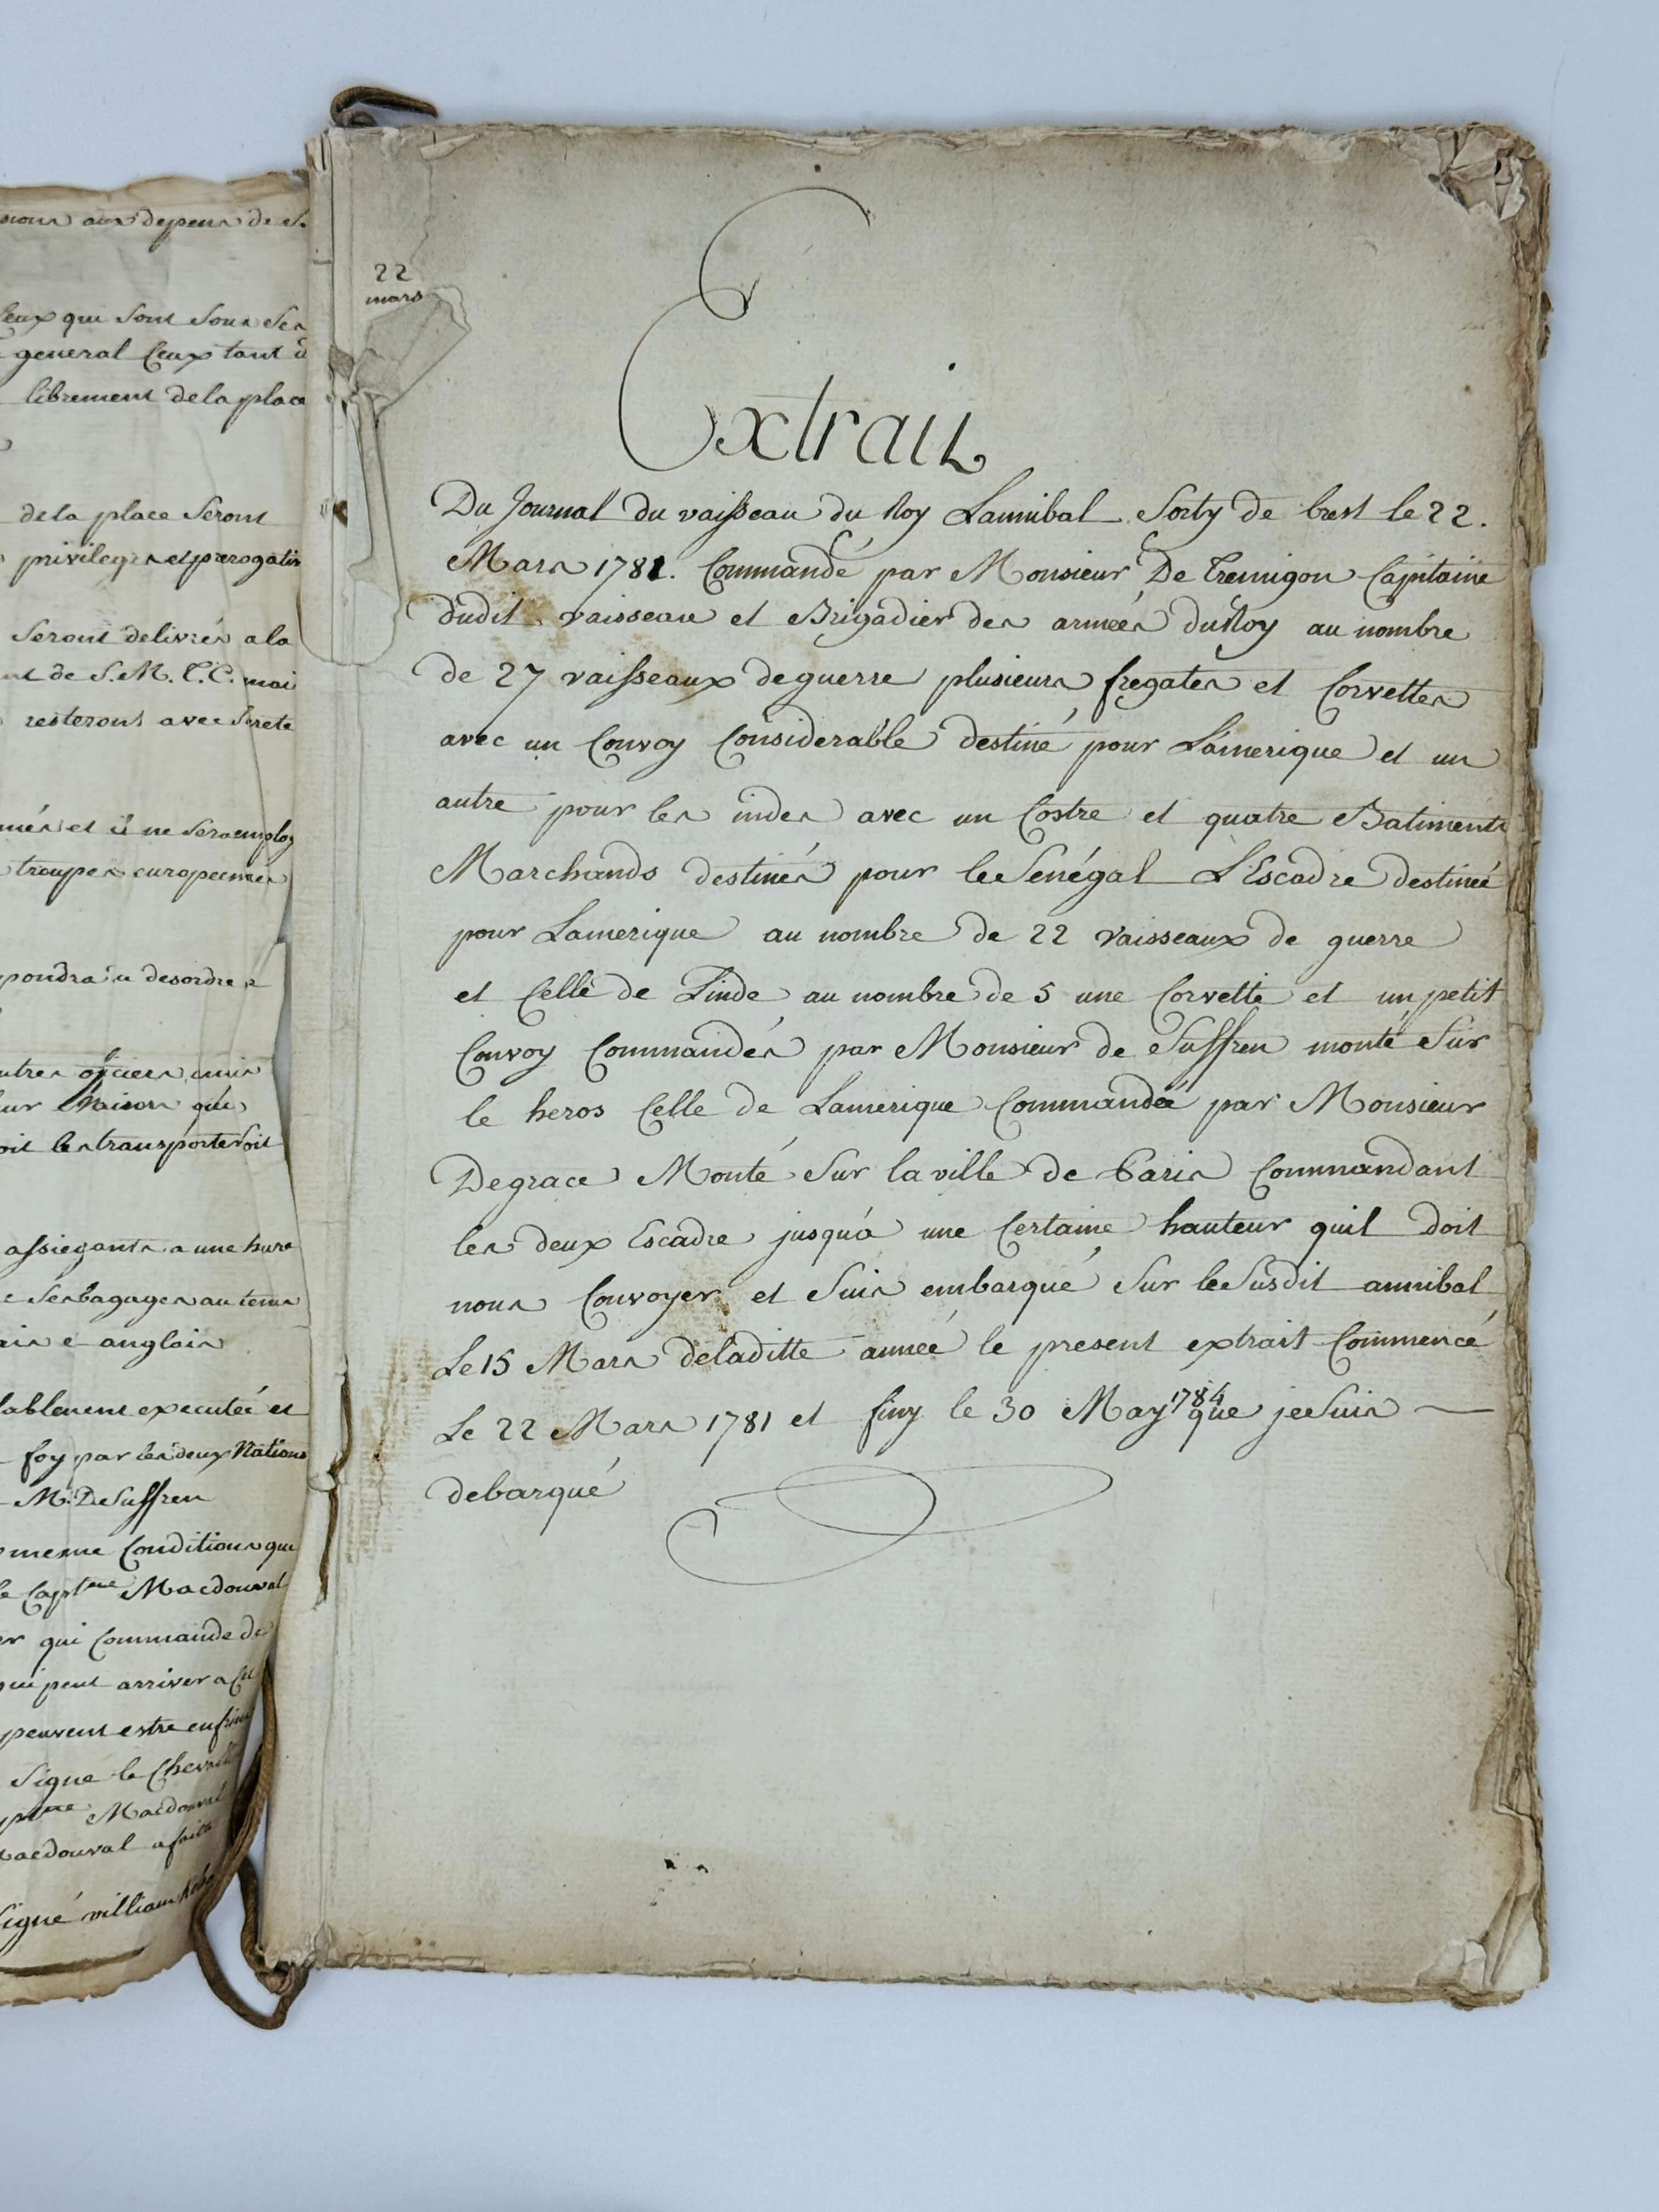 aux depens de S.
Ceux qui sont sous ses
general Ceux tant
librement dela place
dela place Seront
privileges et prerogativ
Seront delivrés a la
de S. M. T. C. mai
resteront avec Sureté
et il ne Sera employ
troupes europeennes
pondra au desordre
autres officiers
les transporteroit
assiegants a une hure
Ses bagages au tems
e anglois
executée et
foy par les deux Nations
M. De Suffren
meme Conditions que
le Capt.ne Macdouval
qui Commande de
qui peut arriver a
peuvent estre
Signe le Cheval
Macdouval
Macdouval a fait
Signé william
22
mars
Extrait
Du Journal du vaisseau du Roy Lannibal Sorty de brest le 22.
Mars 1781. Commandé par Monsieur De Tremigon Capitaine
dudit vaisseau et Brigadier des armées du Roy au nombre
de 27 vaisseaux de guerre plusieurs fregates et Corvettes
avec un Convoy Considerable destiné pour Lamerique et un
autre pour les indes avec un Costre et quatre Batiments
Marchands destinés pour le Senégal L'Escadre destineé
pour Lamerique au nombre de 22 vaisseaux de guerre
et Celle de Linde au nombre de 5 une Corvette et un petit
Convoy Commandés par Monsieur de Suffren monté Sur
le heros Celle de Lamerique Commandeé par Monsieur
Degrace Monté Sur la ville de Paris Commandant
les deux Escadre jusqu'à une Certaine hauteur quil doit
nous Convoyer et Suis embarqué Sur le Susdit annibal
Le 15 Mars de laditte anneé le present extrait Commencé
Le 22 Mars 1781 et finy le 30 May 1784 que je Suis
debarqué